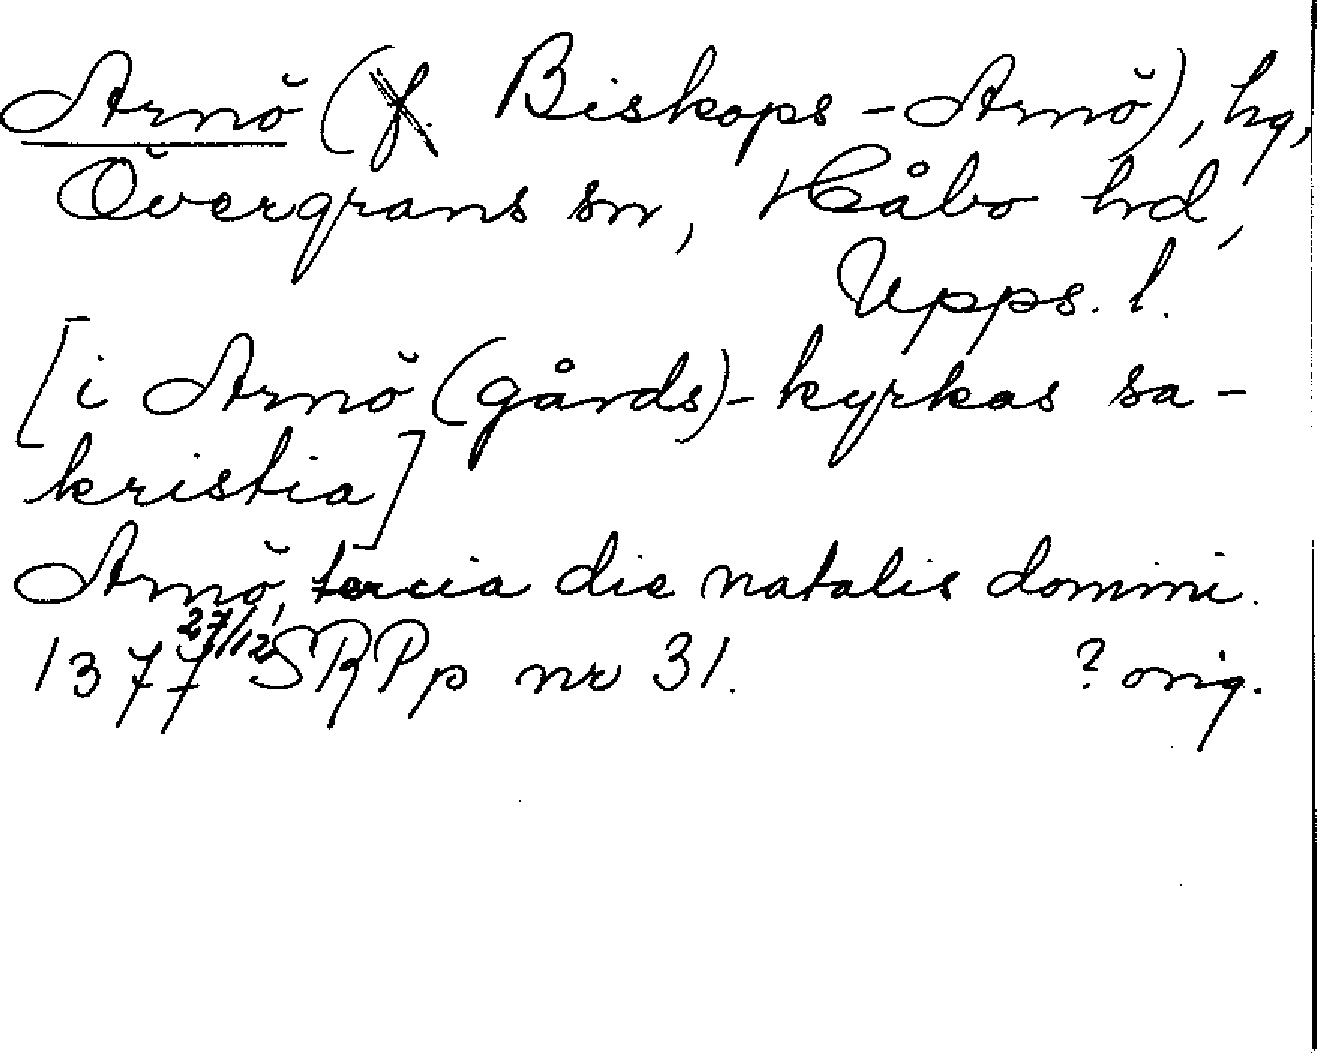 Arnö (f. Biskops-Arnö), hg,
Övergrans sn, Håbo hd,
Upps. l.
[i Arnö (gårds)-kyrkas sa-
kristia]
Arnö, tercia die natalis domini.
1377 27/12 SRPp nr 31. ? orig.